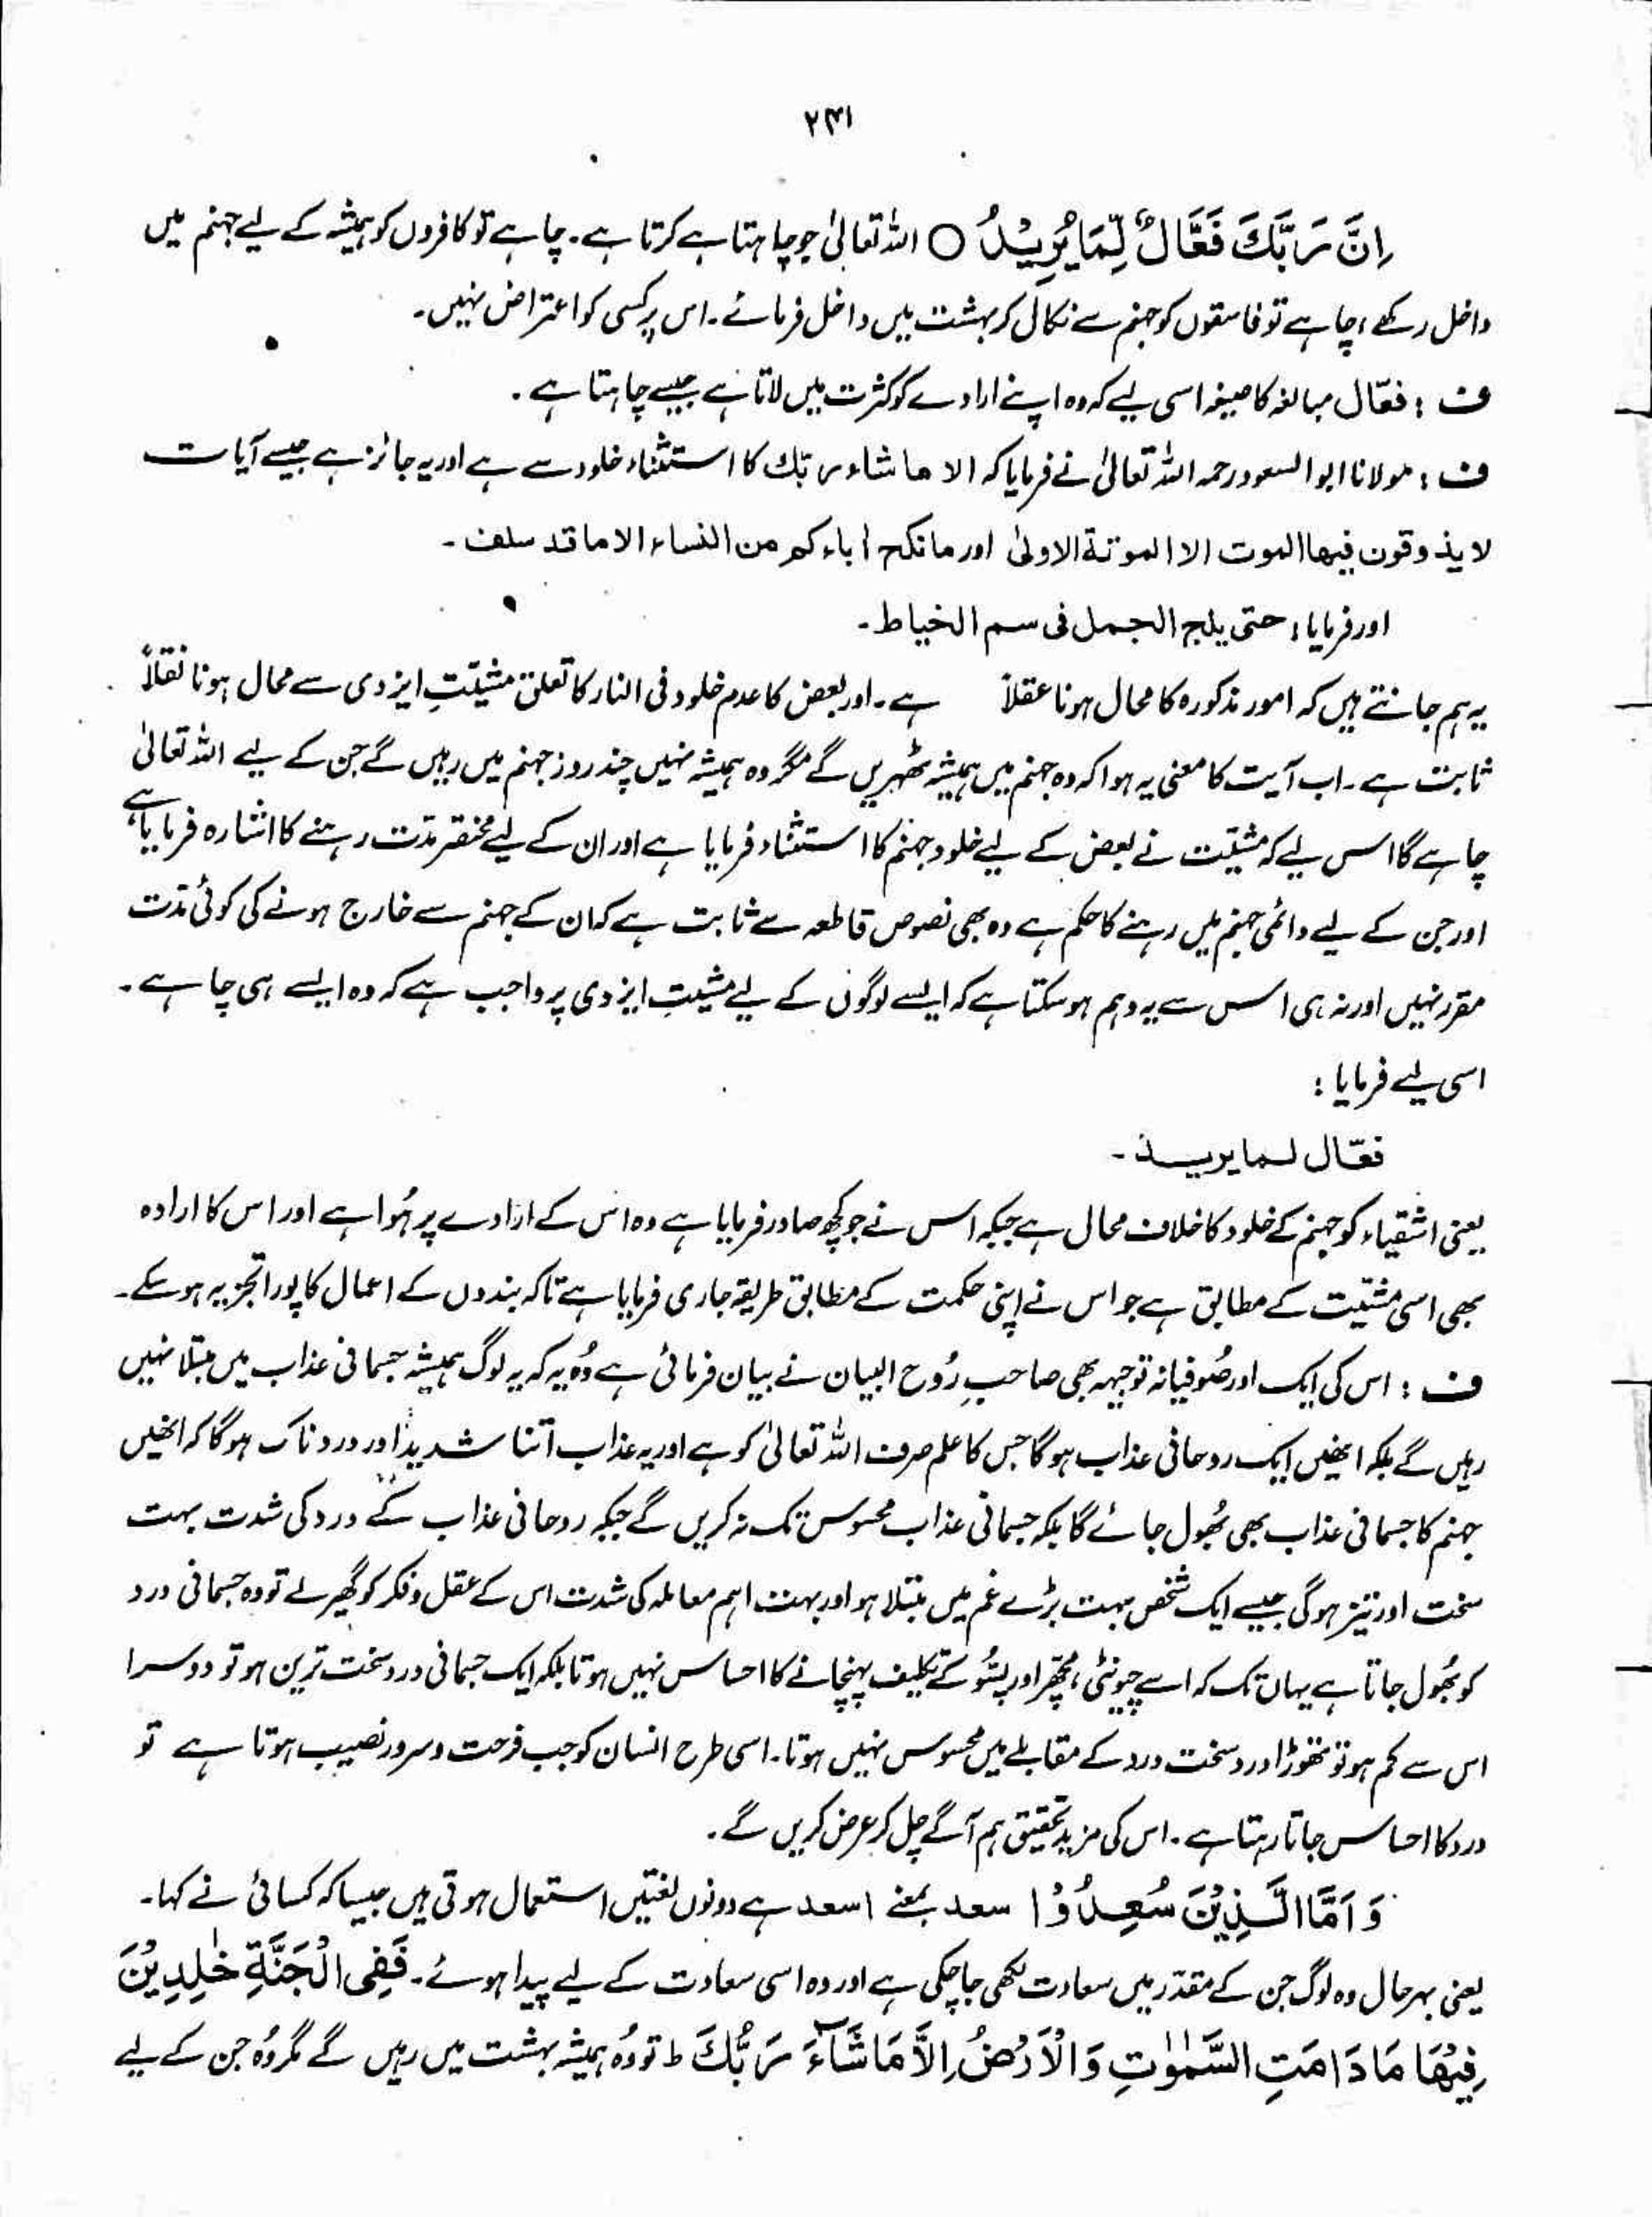 ۲۴۱
اِنَّ رَبَّكَ فَعَّالٌ لِّمَا يُرِيْدُ ○ اللہ تعالیٰ جو چاہتا ہے کرتا ہے۔ چاہے تو کافروں کو ہمیشہ کے لیے جہنم میں
داخل رکھے، چاہے تو فاسقوں کو جہنم سے نکال کر بہشت میں داخل فرمائے۔ اس پر کسی کو اعتراض نہیں۔
ف : فعّال مبالغہ کا صیغہ اسی لیے کہ وہ اپنے ارادے کو کثرت میں لاتا ہے جیسے چاہتا ہے۔
ف : مولانا ابو السعود رحمہ اللہ تعالیٰ نے فرمایا کہ الا ما شاء ربك کا استثناء خلود سے ہے اور یہ جائز ہے جیسے آیات
لا يذوقون فيها الموت الا الموتة الاولىٰ اور ما نكح اٰباءكم من النساء الا ما قد سلف۔
اور فرمایا : حتى يلج الجمل فى سم الخياط۔
یہ ہم جانتے ہیں کہ امور مذکورہ کا محال ہونا عقلاً ہے۔ اور بعض کا عدم خلود فی النار کا تعلق مشیّتِ ایزدی سے محال ہونا نقلاً
ثابت ہے۔ اب آیت کا معنی یہ ہوا کہ وہ جہنم میں ہمیشہ ٹھہریں گے مگر وہ ہمیشہ نہیں چند روز جہنم میں رہیں گے جن کے لیے اللہ تعالیٰ
چاہے گا اس لیے کہ مشیّت نے بعض کے لیے خلود جہنم کا استثناء فرمایا ہے اور ان کے لیے مختصر مدّت رہنے کا اشارہ فرمایا ہے،
اور جن کے لیے دائمی جہنم میں رہنے کا حکم ہے وہ بھی نصوص قاطعہ سے ثابت ہے کہ ان کے جہنم سے خارج ہونے کی کوئی مدّت
مقرر نہیں اور نہ ہی اس سے یہ وہم ہو سکتا ہے کہ ایسے لوگوں کے لیے مشیتِ ایزدی پر واجب ہے کہ وہ ایسے ہی چاہے۔
اسی لیے فرمایا :
فعّال لما يريد۔
یعنی اشقیاء کو جہنم کے خلود کا خلاف محال ہے جبکہ اس نے جو کچھ صادر فرمایا ہے وہ اس کے ارادے پر ہُوا ہے اور اس کا ارادہ
بھی اسی مشیّت کے مطابق ہے جو اس نے اپنی حکمت کے مطابق طریقہ جاری فرمایا ہے تاکہ بندوں کے اعمال کا پورا تجزیہ ہو سکے۔
ف : اس کی ایک اور صُوفیانہ توجیہہ بھی صاحبِ رُوح البیان نے بیان فرمائی ہے وُہ یہ کہ یہ لوگ ہمیشہ جسمانی عذاب میں مبتلا نہیں
رہیں گے بلکہ انھیں ایک روحانی عذاب ہوگا جس کا علم صرف اللہ تعالیٰ کو ہے اور یہ عذاب اتنا شدید اور دردناک ہوگا کہ انھیں
جہنم کا جسمانی عذاب بھی بُھول جائے گا بلکہ جسمانی عذاب محسوس تک نہ کریں گے جبکہ روحانی عذاب کے درد کی شدت بہت
سخت اور تیز ہوگی جیسے ایک شخص بہت بڑے غم میں مبتلا ہو اور بہت اہم معاملہ کی شدت اس کے عقل و فکر کو گھیر لے تو وہ جسمانی درد
کو بُھول جاتا ہے یہاں تک کہ اسے چیونٹی، مچھّر اور پسُّو کے تکلیف پہنچانے کا احساس نہیں ہوتا بلکہ ایک جسمانی درد سخت ترین ہو تو دوسرا
اس سے کم ہو تو تھوڑا درد سخت درد کے مقابلے میں محسوس نہیں ہوتا۔ اسی طرح انسان کو جب فرحت و سرور نصیب ہوتا ہے تو
درد کا احساس جاتا رہتا ہے۔ اس کی مزید تحقیق ہم آگے چل کر عرض کریں گے۔
وَ اَمَّا الَّذِيْنَ سُعِدُوْا سعد بمعنے اسعد ہے دونوں لغتیں استعمال ہوتی ہیں جیسا کہ کسائی نے کہا۔
یعنی بہرحال وہ لوگ جن کے مقدّر میں سعادت لکھی جا چکی ہے اور وہ اسی سعادت کے لیے پیدا ہوئے۔ فَفِى الْجَنَّةِ خٰلِدِيْنَ
فِيْهَا مَا دَامَتِ السَّمٰوٰتِ وَ الْاَرْضُ اِلَّا مَا شَآءَ رَبُّكَ ط تو وُہ ہمیشہ بہشت میں رہیں گے مگر وُہ جن کے لیے